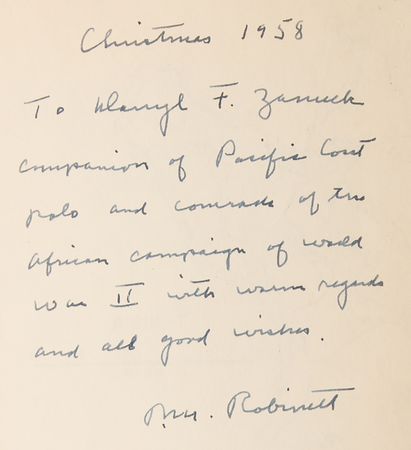 Christmas 1958
To Darryl F. Zanuck
companion of Pacific Coast
polo and comrade of the
African campaign of world
war II with warm regards
and all good wishes.
P.M. Robinett